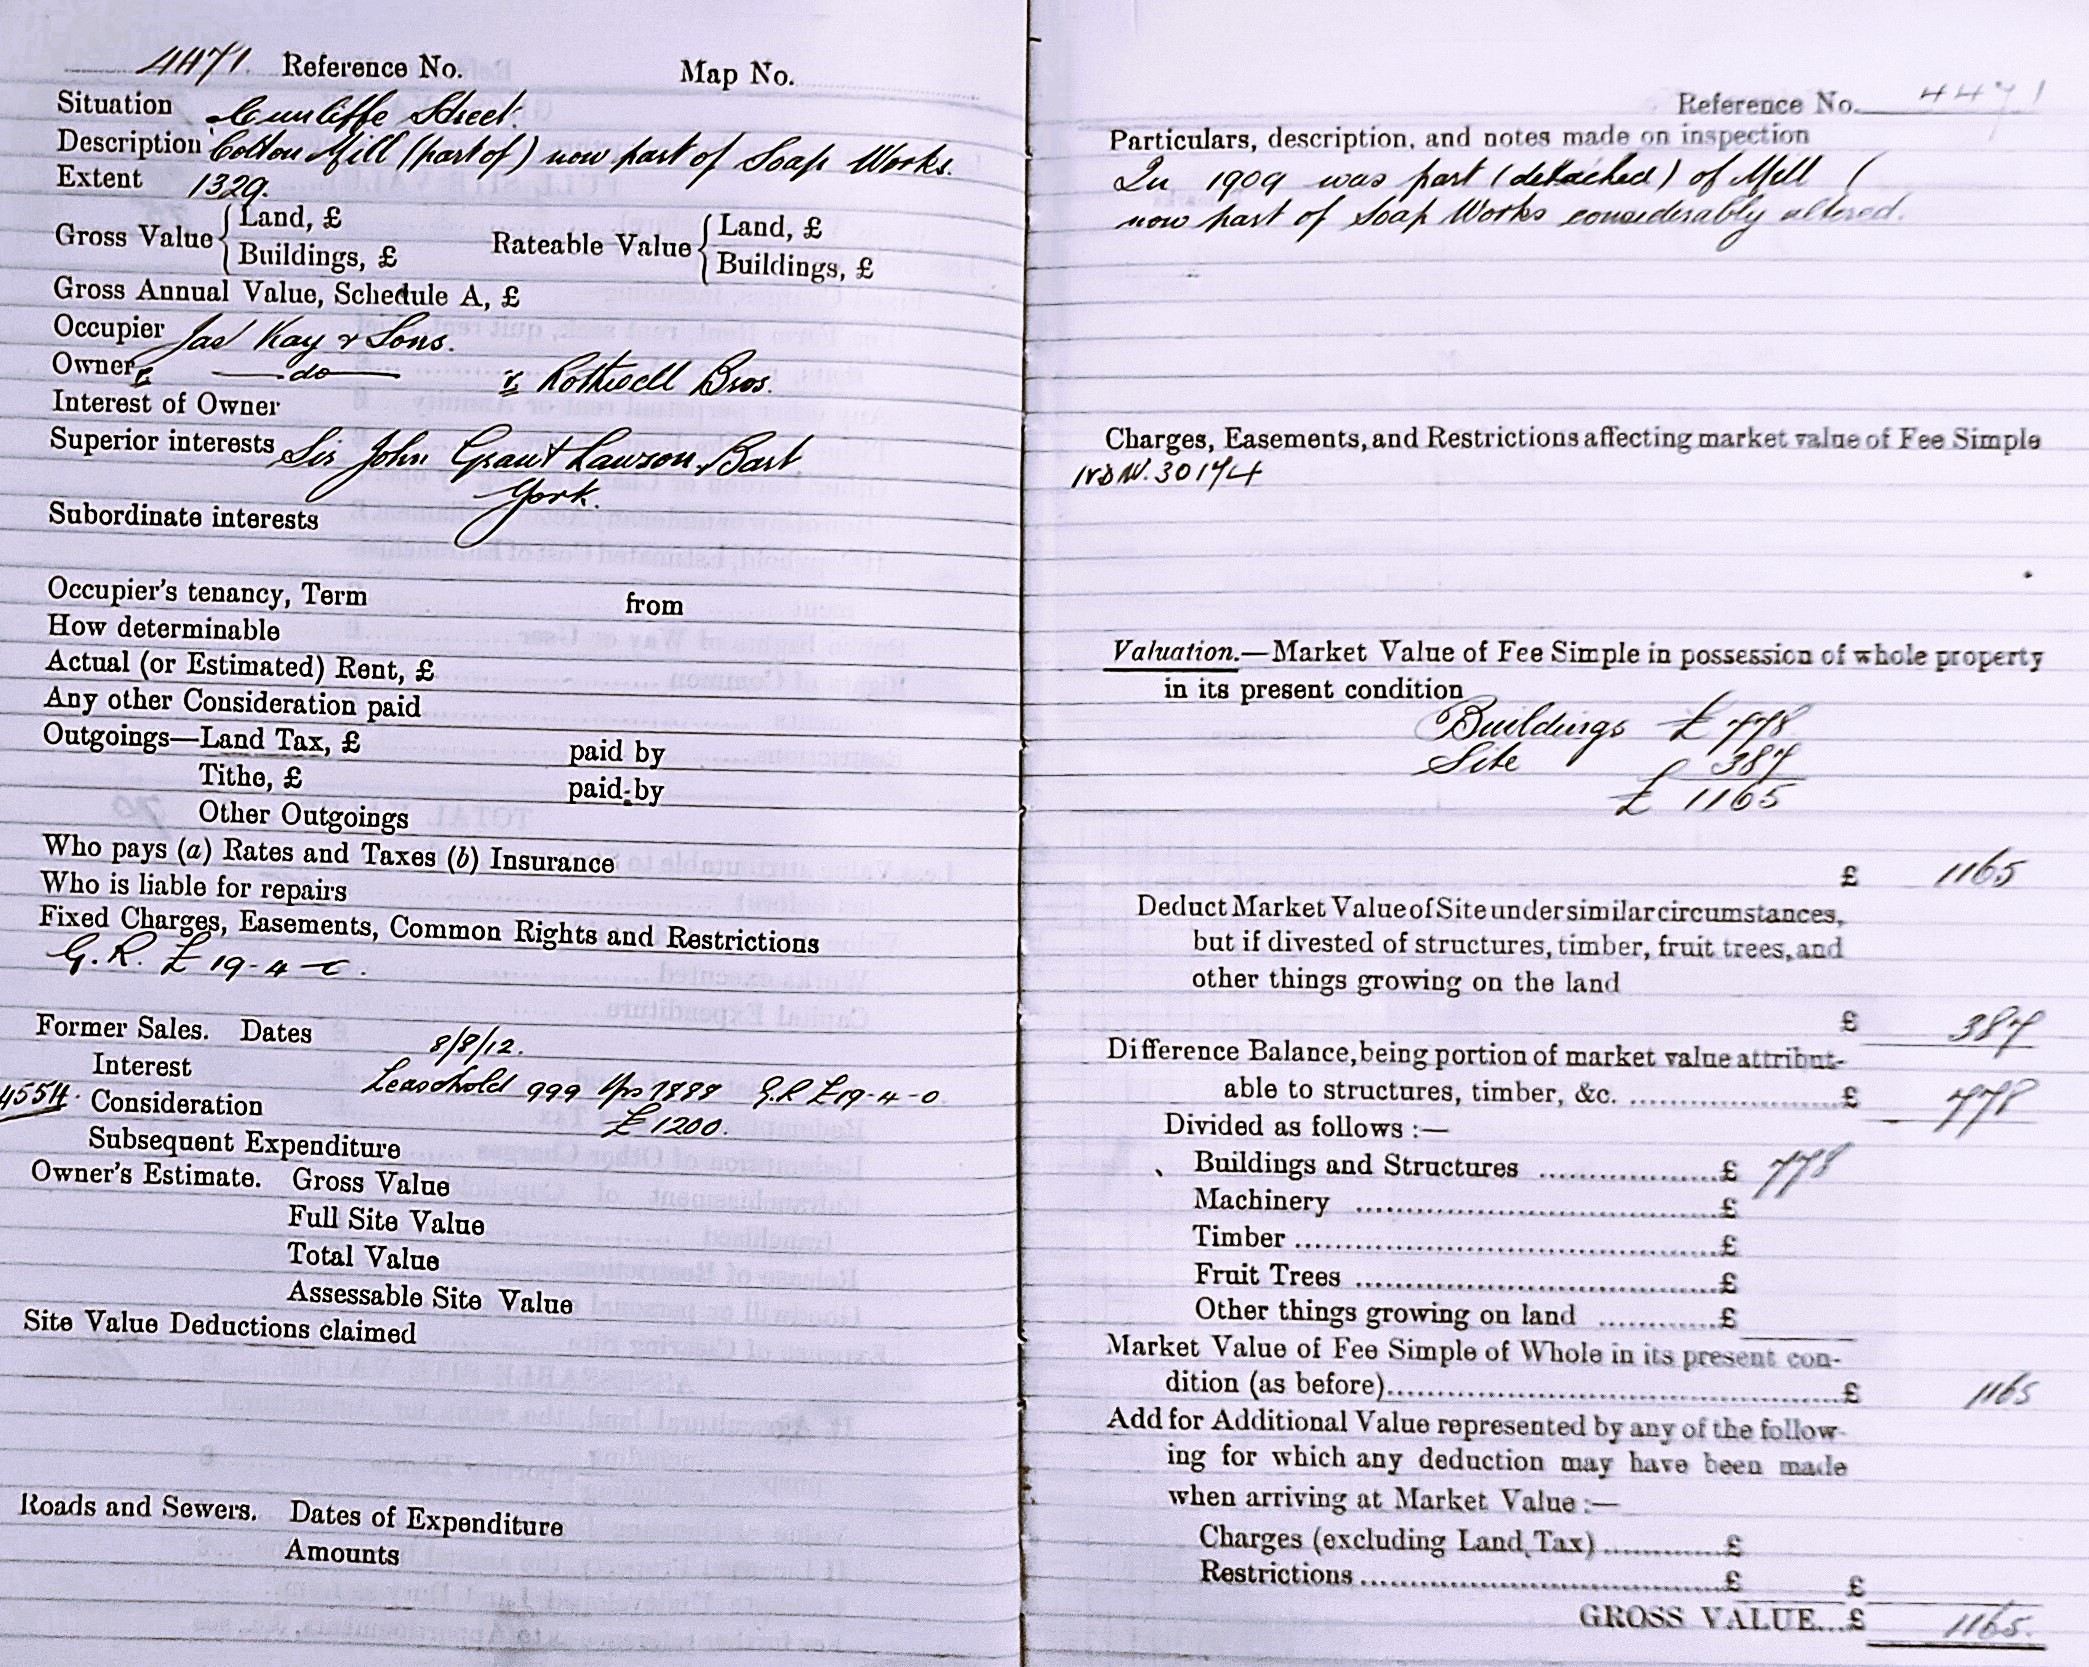 4471. Reference No. Map No.
Situation Cunliffe Street.
Description Cotton Mill (part of) now part of Soap Works.
Extent 1329.
Gross Value { Land, £ Rateable Value { Land, £
Buildings, £ Buildings, £
Gross Annual Value, Schedule A, £
Occupier Jas Kay & Sons.
Owner — do — Rothwell Bros.
Interest of Owner
Superior interests Sir John Grant Lawson, Bart
York.
Subordinate interests
Occupier's tenancy, Term from
How determinable
Actual (or Estimated) Rent, £
Any other Consideration paid
Outgoings—Land Tax, £ paid by
Tithe, £ paid by
Other Outgoings
Who pays (a) Rates and Taxes (b) Insurance
Who is liable for repairs
Fixed Charges, Easements, Common Rights and Restrictions
G.R. £19-4-0.
Former Sales. Dates 8/8/12.
Interest Leasehold 999 yrs 1888 G.R £19-4-0.
4554. Consideration £1200.
Subsequent Expenditure
Owner's Estimate. Gross Value
Full Site Value
Total Value
Assessable Site Value
Site Value Deductions claimed
Roads and Sewers. Dates of Expenditure
Amounts
Reference No. 4471
Particulars, description, and notes made on inspection
In 1909 was part (detached) of Mill (
now part of Soap Works considerably altered.
Charges, Easements, and Restrictions affecting market value of Fee Simple
30174
Valuation.—Market Value of Fee Simple in possession of whole property
in its present condition
Buildings £778
Site 387
£ 1165
£ 1165
Deduct Market Value of Site under similar circumstances,
but if divested of structures, timber, fruit trees, and
other things growing on the land
£ 387
Difference Balance, being portion of market value attribut-
able to structures, timber, &c. ........ £ 778
Divided as follows :—
Buildings and Structures ........ £ 778
Machinery ........ £
Timber ........ £
Fruit Trees ........ £
Other things growing on land ........ £
Market Value of Fee Simple of Whole in its present con-
dition (as before)........ £ 1165
Add for Additional Value represented by any of the follow-
ing for which any deduction may have been made
when arriving at Market Value :—
Charges (excluding Land Tax) ........ £
Restrictions ........ £ £
GROSS VALUE... £ 1165.